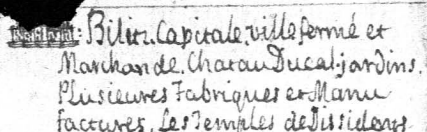 : Bilitz. Capitale, ville fermé et
Marchande. Chatau Ducal. jardins.
Plusieures Fabriques et Manu
factures. Les Temples de Dissidents